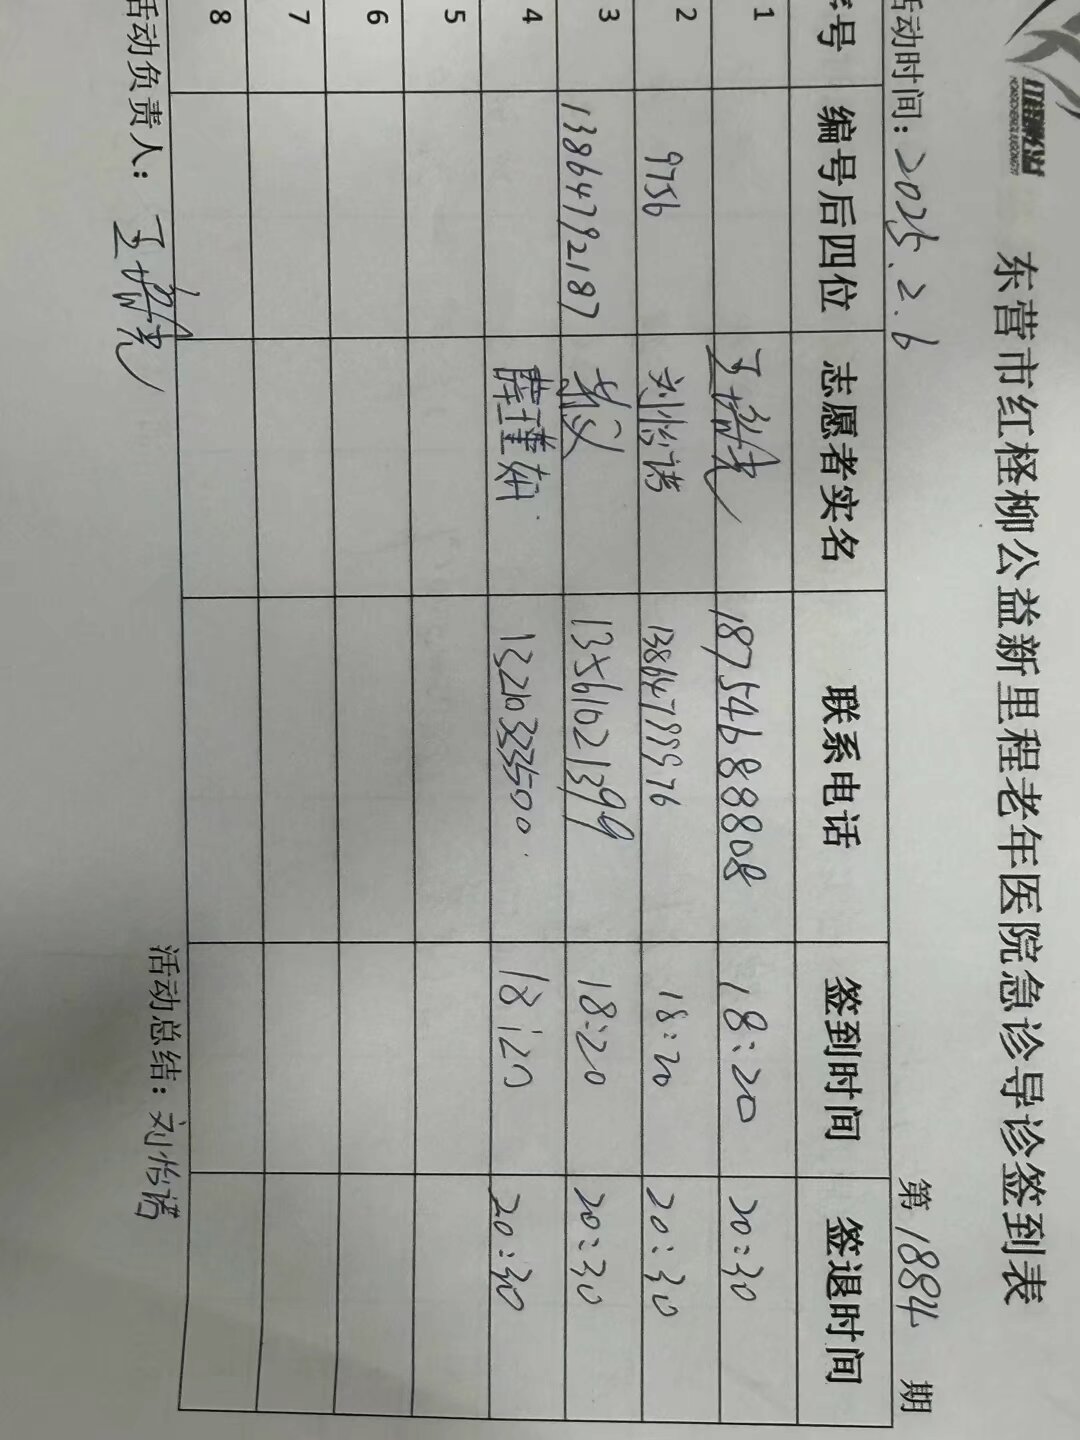 红柽柳公益
东营市红柽柳公益新里程老年医院急诊导诊签到表
活动时间：2025.2.6 第1884期
序号 编号后四位 志愿者实名 联系电话 签到时间 签退时间
1 18754688808 18:20 20:30
2 9756 刘怡诺 13864789976 18:20 20:30
3 13864792187 13561021399 18:20 20:30
4 薛瑾妍 13210333500 18:20 20:30
5
6
7
8
活动负责人： 活动总结：刘怡诺